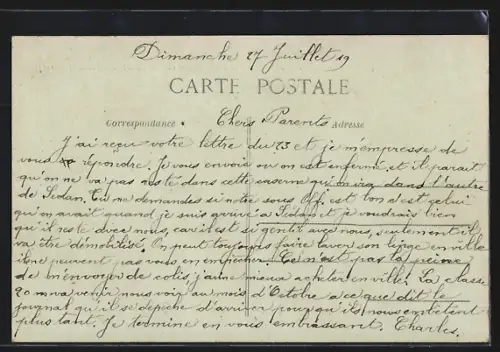 Dimanche 27 Juillet 19
CARTE POSTALE
Correspondance Chers Parents Adresse
J'ai reçu votre lettre du 23 et je m'empresse de
vous répondre. Je vous envoie ou on est enfermé, et il parait
qu'on ne va pas resté dans cette caserne qu'on ira dans l'autre
de Sedan. Tu me demandes si notre sous Off. est bon s'est celui
qu'on avait quand je suis arrivé a Sedan et je voudrais bien
qu'il reste avec nous, car il est si gentil avec nous, seulement il
va être démobilisé. On peut toujours faire laver son linge en ville
il ne peuvent pas vous en empêcher. Ce n'est pas la peine
de m'envoyer de colis j'aime mieux acheter en ville. La classe
20 va venir nous voir au mois d'Octobre a ce que dit le
journal qu'il se dépêche d'arriver pour qu'ils nous embêtent
plus tant. Je termine en vous embrassant. Charles.